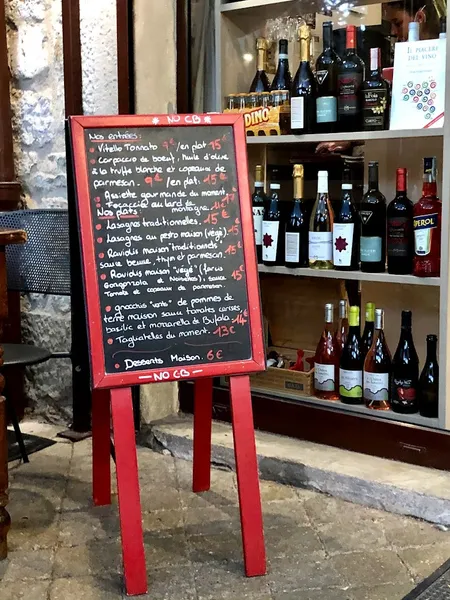 * NO CB *
Nos entrées:
• Vitello Tonnato 9€/en plat 15€
• Carpaccio de boeuf, huile d'olive
à la truffe blanche et copeaux de
parmesan. 9€ /en plat. 15€
• Assiette gourmande du moment. 17€
• Focaccia au lard de montagne. 11€
Nos plats:
• Lasagnes traditionnelles. 15€
• Lasagnes au pesto maison (végé) 15€
• Raviolis maison "traditionnels"
sauce beurre, thym et parmesan. 15€
• Raviolis maison "végé" (farcis
Gorgonzola et Noisettes), sauce 15€
Tomate et copeaux de parmesan.
• gnocchis "verts" de pommes de
terre maison sauce tomates cerises
basilic et mozzarella de Bufala. 14€
• Tagliatelles du moment. 13€
• Desserts Maison. 6€
NO CB
IL PIACERE
DEL VINO
DINO
APEROL